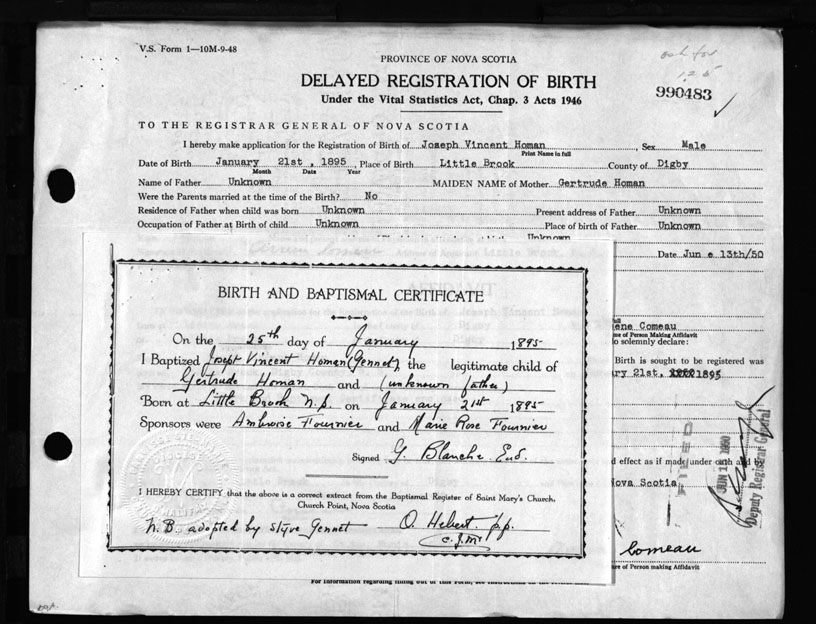 V.S. Form 1—10M-9-48
PROVINCE OF NOVA SCOTIA
DELAYED REGISTRATION OF BIRTH
Under the Vital Statistics Act, Chap. 3 Acts 1946
990483
TO THE REGISTRAR GENERAL OF NOVA SCOTIA
I hereby make application for the Registration of Birth of Joseph Vincent Homan, Sex Male
Print Name in full
Date of Birth January 21st, 1895, Place of Birth Little Brook County of Digby
Month Date Year
Name of Father Unknown MAIDEN NAME of Mother Gertrude Homan
Were the Parents married at the time of the Birth? No
Residence of Father when child was born Unknown Present address of Father Unknown
Occupation of Father at Birth of child Unknown Place of birth of Father Unknown
Unknown
Date Jun e 13th/50
BIRTH AND BAPTISMAL CERTIFICATE
On the 25th day of January 1895
I Baptized Josept Vincent Homan (Gennet), the legitimate child of
Gertrude Homan and (unknown father)
Born at Little Brook N.S. on January 21st 1895
Sponsors were Ambroise Fournier and Marie Rose Fournier
Signed G. Blanche Eud.
I HEREBY CERTIFY that the above is a correct extract from the Baptismal Register of Saint Mary's Church,
Church Point, Nova Scotia
N.B. adopted by Styve Gennet O. Hebert pp.
c.j.m.
ene Comeau
me of Person Making Affidavit
to solemnly declare:
Birth is sought to be registered was
ry 21st, 1895
d effect as if made under oath and by
Nova Scotia,
FILED
JUN 15 1950
Deputy Registrar General
Comeau
ure of Person making Affidavit
For information regarding filling out of this Form, see instructions on the